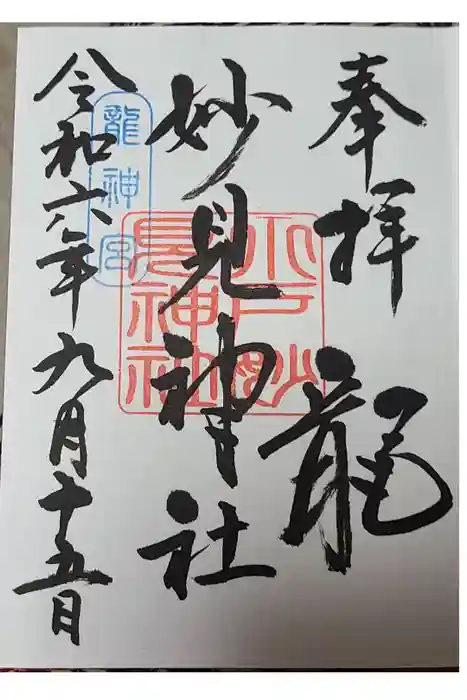 奉拝 龍
妙見神社
令和六年九月十五日
龍神宮
水戸妙
見神社